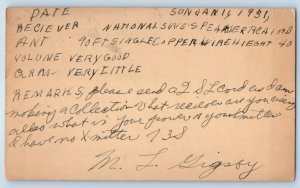 DATE SON JAN 11, 1931,
RECIEVER NATIONAL SUNG SPEAKER RCA 103
ANT 90 FT SINGLE COPPER WIRE HIEGHT 40
VOLUME VERY GOOD
QRM - VERY LITTLE
REMARKS, please send a QSL cord as I am
making a Collection What reciever are you using
allso what is your power & your mitter
I have no Xmitter 73S
M. L. Grigsby